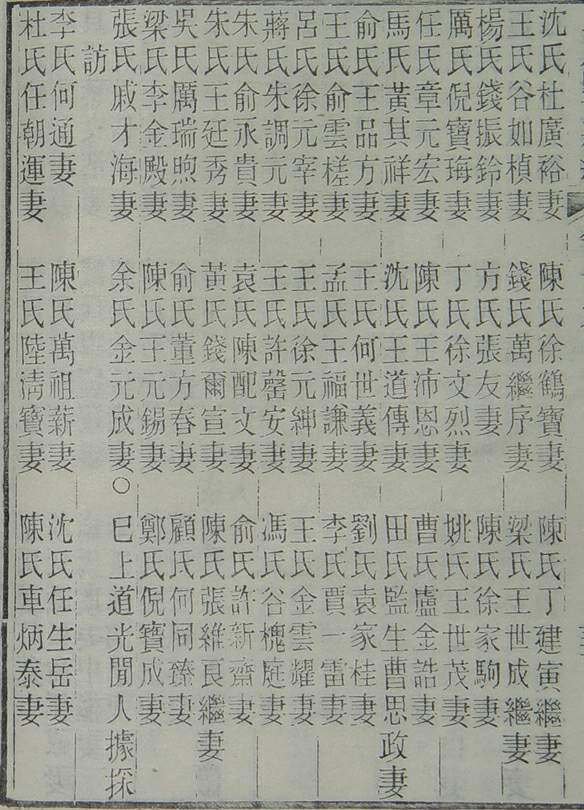 沈氏杜廣裕妻 陳氏徐鶴寶妻 陳氏丁建寅繼妻
王氏谷如楨妻 錢氏萬繼序妻 梁氏王世成繼妻
楊氏錢振鈴妻 方氏張友妻 陳氏徐家駒妻
厲氏倪寶珻妻 丁氏徐文烈妻 姚氏王世茂妻
任氏章元宏妻 陳氏王沛恩妻 曹氏盧金誥妻
馬氏黃其祥妻 沈氏王道傳妻 田氏監生曹思政妻
俞氏王品方妻 王氏何世義妻 劉氏袁家桂妻
王氏俞雲槎妻 孟氏王福謙妻 李氏賈一雷妻
呂氏徐元宰妻 王氏徐元紳妻 王氏金雲耀妻
蔣氏朱調元妻 王氏許罄安妻 馮氏谷槐庭妻
朱氏俞永貴妻 袁氏陳配文妻 俞氏許新齋妻
朱氏王廷秀妻 黃氏錢爾宣妻 陳氏張維良繼妻
吳氏厲瑞煦妻 俞氏董方春妻 顧氏何同臻妻
梁氏李金殿妻 陳氏王元錫妻 鄭氏倪寶成妻
張氏戚才海妻 余氏金元成妻○巳上道光聞人據採
訪
李氏何通妻 陳氏萬祖薪妻 沈氏任生岳妻
杜氏任朝運妻 王氏陸淸寶妻 陳氏車炳泰妻